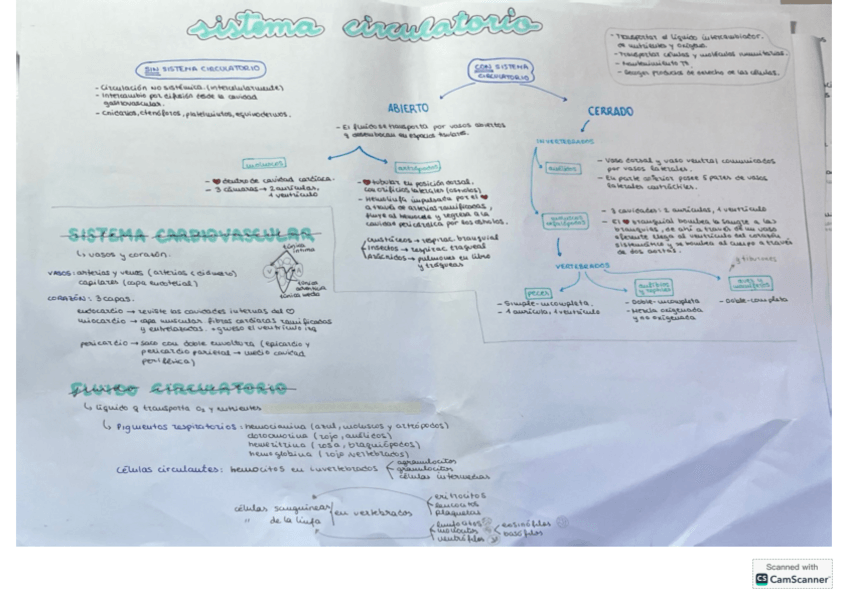 sistema circulatorio
- Transportar el líquido intercambiador de nutrientes y oxígeno.
- Transportar células y moléculas inmunitarias.
- Mantenimiento Tª
- Recoger productos de desecho de las células.
SIN SISTEMA CIRCULATORIO
- Circulación no sistémica. (intercelularmente)
- Intercambio por difusión desde la cavidad
gastrovascular.
- Cnidarios, ctenóforos, platelmintos, equinodermos.
CON SISTEMA
CIRCULATORIO
ABIERTO
- El fluido se transporta por vasos abiertos
y desembocan en espacios tisulares.
moluscos
- dentro de cavidad cardíaca.
- 3 cámaras → 2 aurículas,
1 ventrículo
artrópodos
- tubular en posición dorsal,
con orificios laterales (ostiolos)
- Hemolinfa impulsada por el
a través de arterias ramificadas,
fluye al hemocele y regresa a la
cavidad pericárdica por los ostiolos.
crustáceos → respirac. branquial
insectos → respirac. traqueal
Arácnidos → pulmones en libro
y tráqueas
CERRADO
INVERTEBRADOS
anélidos
- Vaso dorsal y vaso ventral comunicados
por vasos laterales.
- En parte anterior posee 5 pares de vasos
laterales contráctiles.
moluscos
cefalópodos
- 3 cavidades: 2 aurículas, 1 ventrículo
- El branquial bombea la sangre a las
branquias, de ahí a través de un vaso
eferente llega al ventrículo del corazón
sistémico y se bombea al cuerpo a través
de dos aortas.
VERTEBRADOS
peces
- Simple-incompleta.
- 1 aurícula, 1 ventrículo
anfibios
y reptiles
- Doble-incompleta
- Mezcla oxigenada
y no oxigenada
aves y
mamíferos
- Doble-completa
SISTEMA CARDIOVASCULAR
↳ vasos y corazón.
VASOS: arterias y venas (arterias < diámetro)
capilares (capa endotelial)
túnica
íntima
túnica
adventicia
túnica media
CORAZÓN: 3 capas.
endocardio → reviste las cavidades internas del ♡
miocardio → capa muscular fibras cardíacas ramificadas
y entrelazadas. + grueso el ventrículo izq
pericardio → saco con doble envoltura (epicardio y
pericardio parietal → medio cavidad
FLUIDO CIRCULATORIO
↳ Líquido q transporta O₂ y nutrientes
↳ Pigmentos respiratorios: hemocianina (azul, moluscos y artrópodos)
clorocruorina (rojo, anélidos)
hemeritrina (rosa, braquiópodos)
hemoglobina (rojo vertebrados)
Células circulantes: hemocitos en invertebrados
agranulocitos
granulocitos
células intermedias
células sanguíneas
" de la linfa
en vertebrados
eritrocitos
leucocitos
plaquetas
linfocitos
monocitos
neutrófilos
eosinófilos
basófilos
Scanned with
CS CamScanner